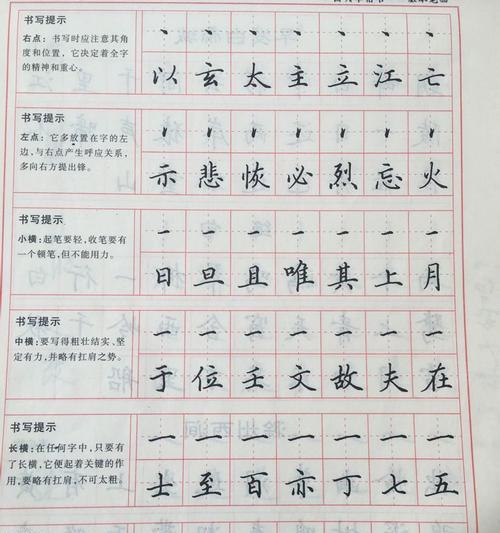 书写提示
右点：书写时应注意其角
度和位置，它决定着全字
的精神和重心。
以 玄 太 主 立 江 亡
书写提示
左点：它多放置在字的左
边，与右点产生呼应关系，
多向右方提出锋。
示 悲 恢 必 烈 忘 火
书写提示
小横：起笔要轻，收笔要有
一个顿笔，但不能用力。
日 旦 且 唯 其 上 月
书写提示
中横：要写得粗壮结实、坚
定有力，并略有扛肩之势。
于 位 壬 文 故 夫 在
书写提示
长横：在任何字中，只要有
了长横，它便起着关键的作
用，要略有扛肩，不可太粗。
士 至 百 亦 丁 七 五